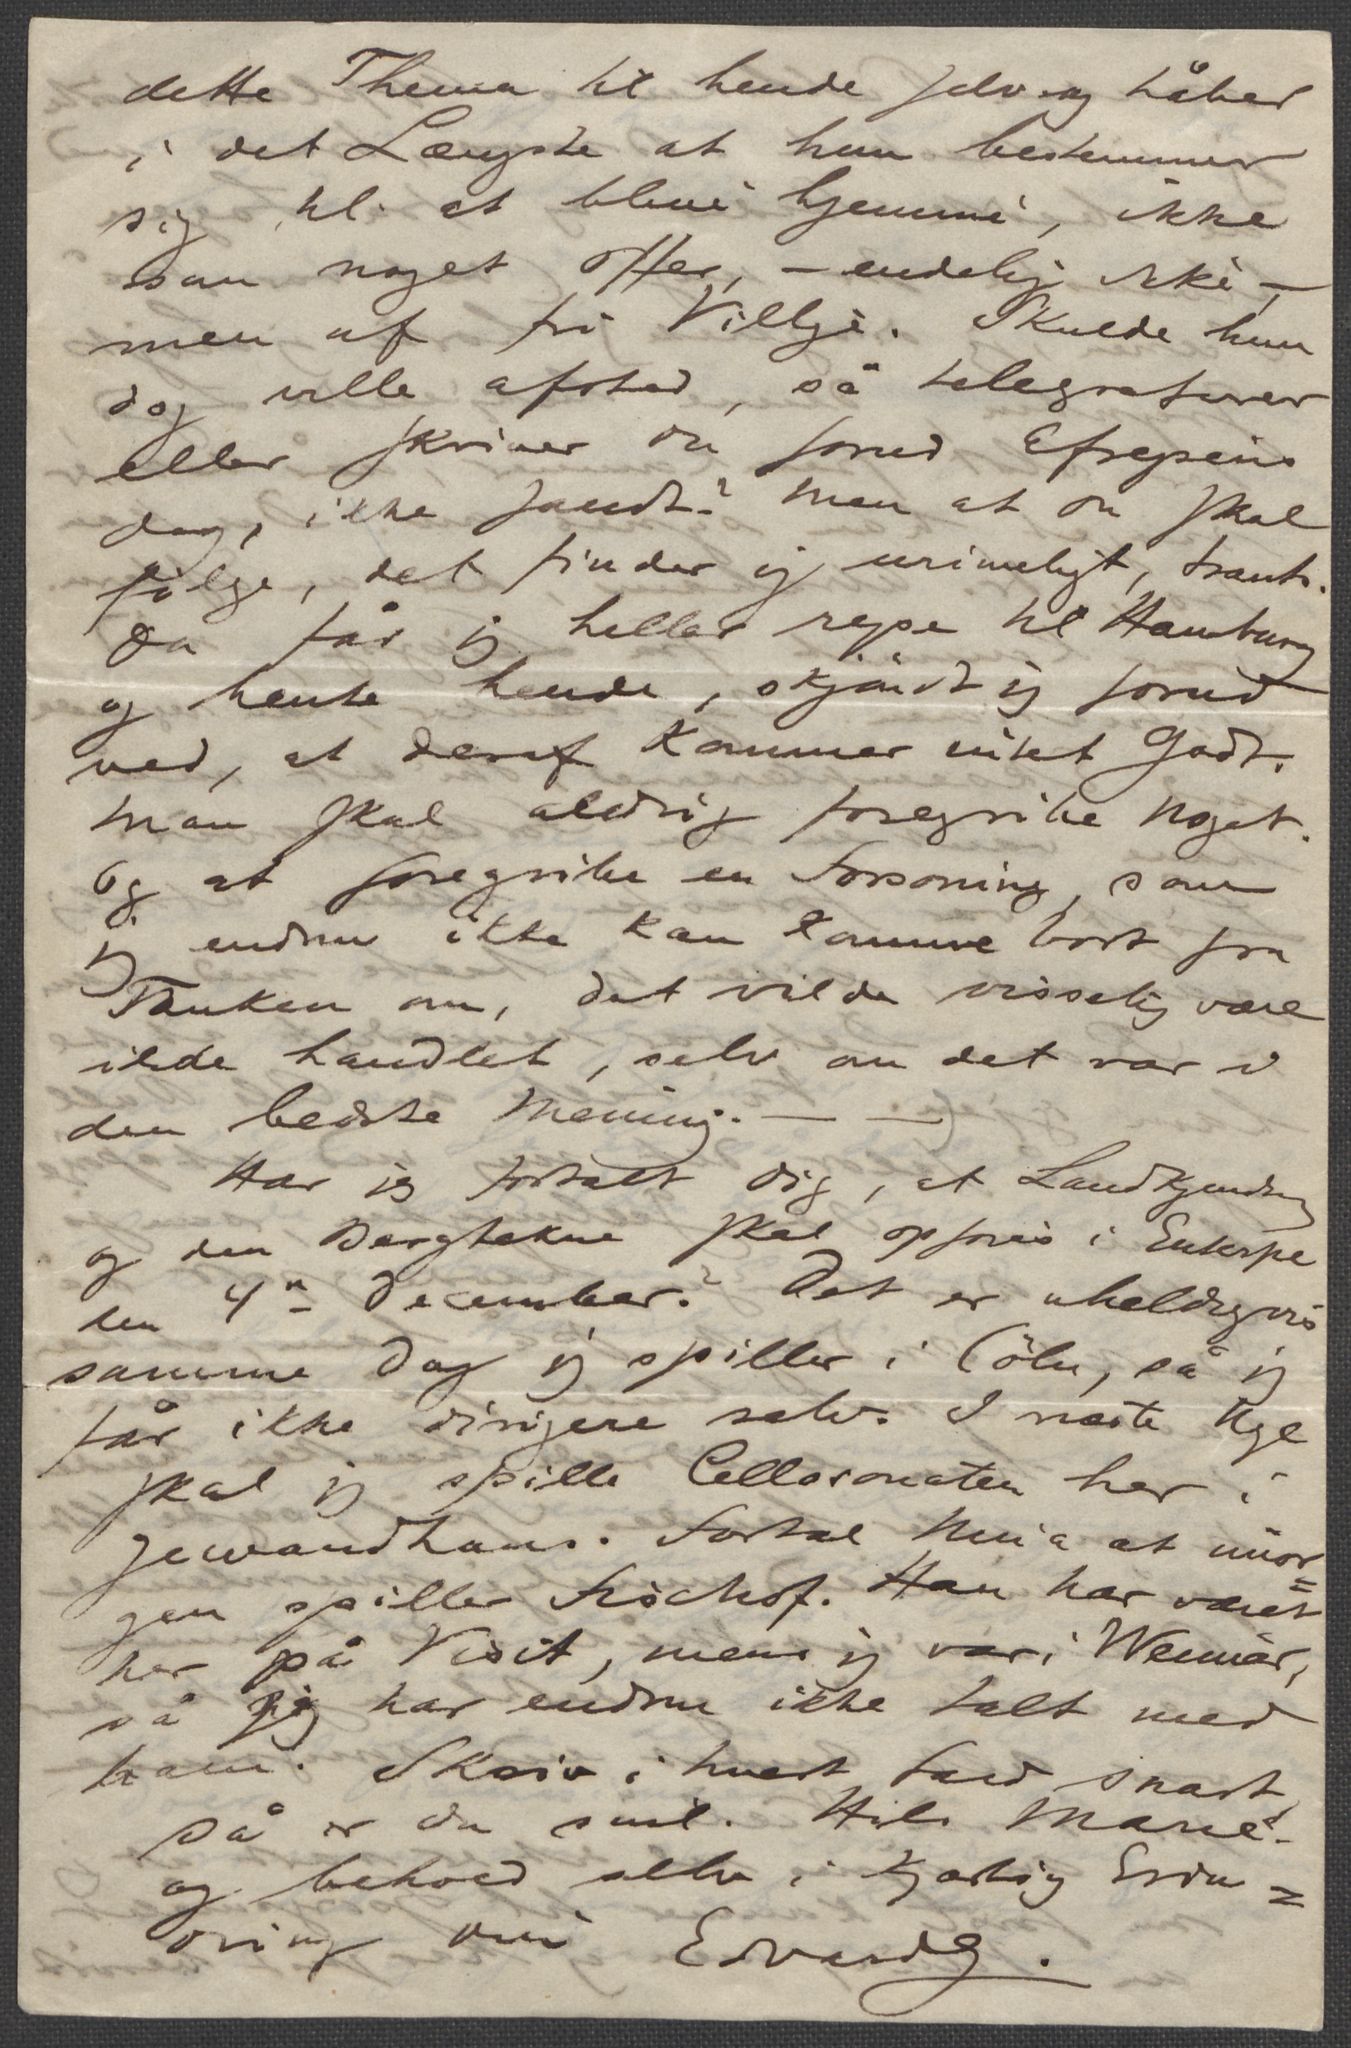 dette Thema til hende selv og håber
i det Længste at hun bestemmer
sig til at blive hjemme, ikke
som noget Offer, – endelig ikke –
men af fri Villje. Skulde hun
dog ville afsted, så telegraferer
eller skriver du forud Afrejsens
dag, ikke sandt? Men at du skal
følge, det finder jeg urimeligt, Frants.
Da får jeg heller rejse til Hamburg
og hente hende, skjøndt jeg forud
ved, at deraf kommer intet Godt.
Man skal aldrig foregribe Noget.
Og at foregribe en Forsoning, som
jeg endnu ikke kan komme bort fra
Tanken om, det vilde visselig være
ilde handlet, selv om det var i
den bedste Mening. – –
Har jeg fortalt dig, at Landkjending
og den Bergtekne skal opføres i Euterpe
den 4n December? Det er uheldigvis
samme Dag jeg spiller i Cöln, så jeg
får ikke dirigere selv. I næste Uge
skal jeg spille Cellosonaten her i
Gewandhaus. Fortæl Nina at imor=
gen spiller Fischhof. Han har været
her på Visit, mens jeg var i Weimar,
så jeg har endnu ikke talt med
ham. Skriv i hvert Fald snart,
så er du snil. Hils Marie
og behold selv i kjærlig Erin=
dring din Edvard G.